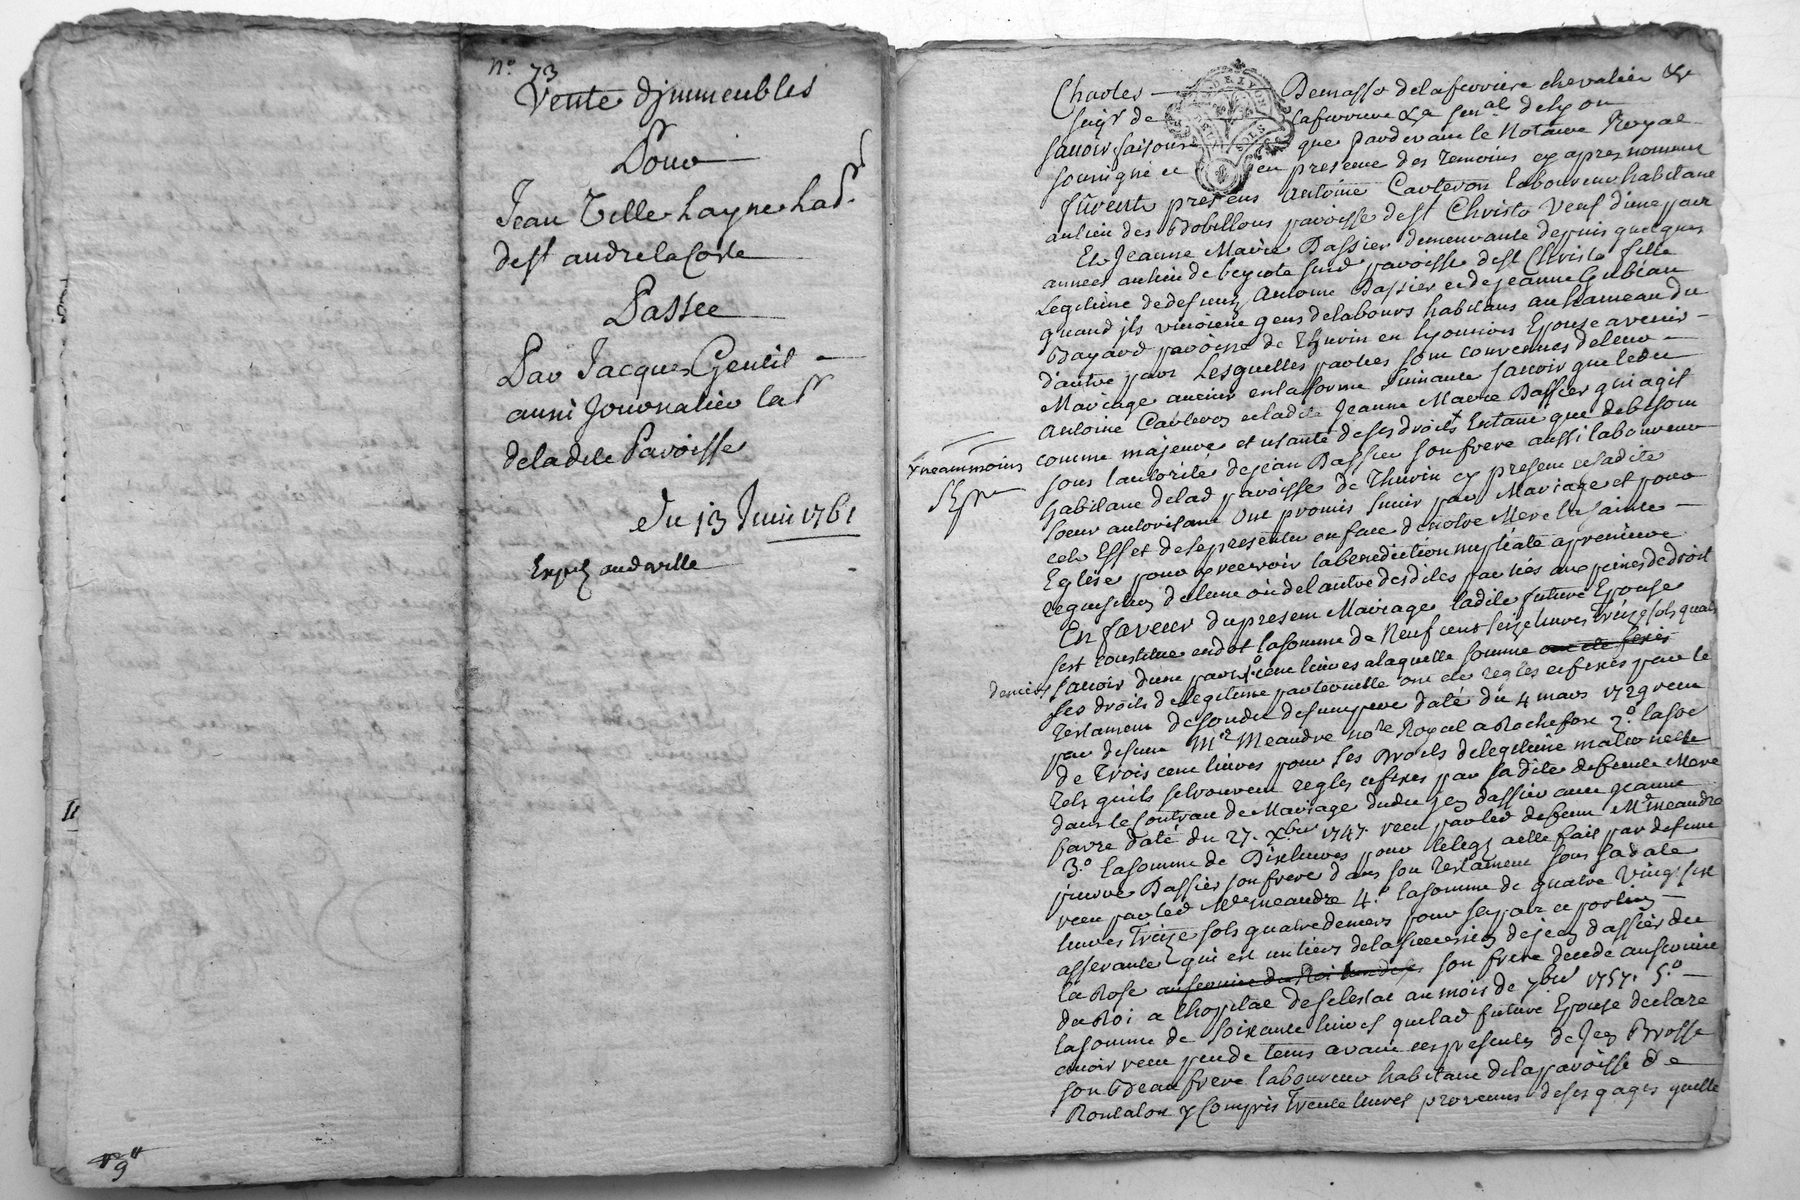 n.º 73
Vente d'immeubles
Pour
Jean Velle hayne hab.t
de st andre la Coste
Passee
Par Jacques Gentil
aussi Journalier
de ladite Paroisse
du 13 Juin 1761
Exp.é andeville
9"
Charles Demasso de la ferriere chevalier &
seig.r de laferriere & sen.al de Lyon
savoir faisons que pardevant le Notaire Royal
soussigné et en presence des Temoins cy apres nommes
furent presens Antoine Carteron laboureur habitant
au lieu des Bobillons paroisse de St Christo Veuf d'une part
Et Jeanne Marie Bassier demeurante depuis quelques
années au lieu de susd paroisse de St Christo fille
Legitime de defunt Antoine Bassier et de jeanne
quand ils vivoient gens de labours habitans au hameau du
Bayard paroisse de Thurin en Lyonnois Epouse avenir
d'autre part Lesquelles parties sont convenues de leur
Mariage avenir en la forme suivante savoir que ledit
Antoine Carteron et ladite Jeanne Marie Bassier qui agit
comme majeure et usante de ses droits x Entant que de besoin
x neanmoins
sous l'autorité de jean Bassier son frere aussi laboureur
habitant de lad paroisse de Thurin cy present et ladite
soeur autorisant Ont promis s'unir par Mariage et pour
cet Effet de se presenter en face de notre Mere la sainte
Eglise pour y recevoir la benediction nuptiale a premiere
requisition de l'une ou de l'autre desdites parties aux peines de droit
En faveur du present Mariage ladite future Epouse
s'est constitue en dot la somme de Neuf cent seize livres Treize sols quatre
deniers savoir d'une part 1.º cent livres a laquelle somme ont ete fixés
ses droits de legitime paternelle ont ete regles et fixes par le
Testament de son dit defunt pere daté du 4 mars 1729 recu
par defunt M.e Meandre no.re Royal a Rochefort 2.º la so.e
de Trois cent livres pour ses Droits de legitime maternelle
Tels quils se trouvent regles et fixes par sa dite defunte Mere
dans le Contrat de Mariage dudit jean bassier avec jeanne
favre daté du 27. Xbre 1747. recu par led defunt M.e Meandre
3.º la somme de Dix livres pour le legs a elle fait par defunt
pierre Bassier son frere dans son Testament sous sa date
recu par led M.e meandre 4.º la somme de quatre Vingt six
livres Treize sols quatre deniers pour sa part et portion
afferante qui est un tiers de la succession de jean bassier dit
la Rose au service du Roi son frere decede au service
du Roi a l'hopital de Selestat au mois de 7bre 1757. 5.º
la somme de soixante livres que lad future Epouse declare
avoir recu peu de tems avant ces presentes de Jean Brosse
son Beaufrere laboureur habitant de la paroisse de
Rontalon y compris Trente livres provenus de ses gages quelle